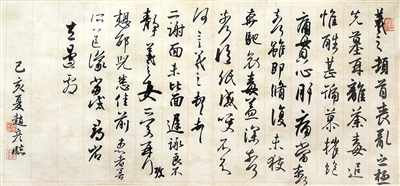 羲之頓首喪亂之極
先墓再離荼毒追
惟酷甚號慕摧絕
痛貫心肝痛當奈何
奈何雖即脩復未獲
奔馳哀毒益深奈何
奈何臨紙感哽不知
何言羲之頓首頓首
二謝面未比面遲詠良不
靜羲之女愛再拜
想邵兒悉佳前患者善
所送議當試尋省
左邊劇
己亥夏趙彥